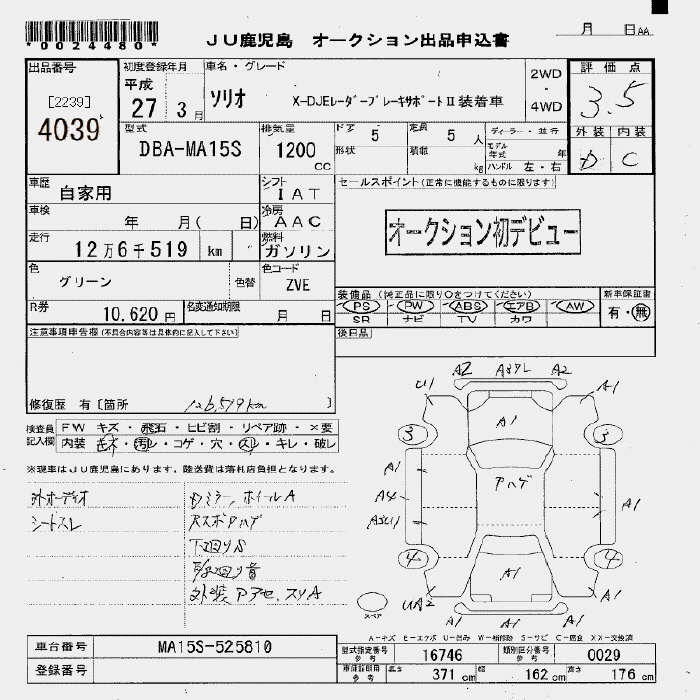 *0024480*
JU鹿児島 オークション出品申込書
月 日AA
出品番号
[2239]
4039
初度登録年月
平成
27 3月
車名・グレード
ソリオ X-DJEレーダーブレーキサポートⅡ装着車
2WD
・
4WD
評価点
3.5
外装 内装
D C
型式
DBA-MA15S
排気量
1200
CC
ドア 5
形状
定員 5人
積載 kg
ディーラー・並行
モデル年式 年
ハンドル 左・右
車歴
自家用
シフト
IAT
セールスポイント(正常に機能するものに限ります)
車検
年 月( 日)
冷房
AAC
オークション初デビュー
走行
12万6千519 km
燃料
ガソリン
色
グリーン
色替
色コード
ZVE
装備品(純正品に限り○をつけてください)
PS PW ABS エアB AW
SR ナビ TV カワ
新車保証書
有・無
R券
10,620円
名変通知期限
月 日
後日品
注意事項申告欄(不具合内容等は具体的に記入して下さい)
修復歴 有〔箇所 126,519km 〕
検査員記入欄
FW キズ・飛石・ヒビ割・リペア跡・×要
内装 キズ・汚レ・コゲ・穴・スレ・キレ・破レ
※現車はJU鹿児島にあります。陸送費は落札店負担となります。
外オーディオ
シートスレ
Dミラー,ホイールA
下回りS
外装 Pアセ,スリA
U1 A2 A3 A2 A1
A1
3 3
A1
Aハゲ
A4
A1
A3U1
4 4
A1 A1
UA2
A1
スペア
A-キズ E-エクボ U-凹み W-補修跡 S-サビ C-腐食 XX-交換済
車台番号
MA15S-525810
登録番号
型式指定番号
参考
16746
類別区分番号
参考
0029
車庫証明用
参考
長さ 371 cm
幅 162 cm
高さ 176 cm